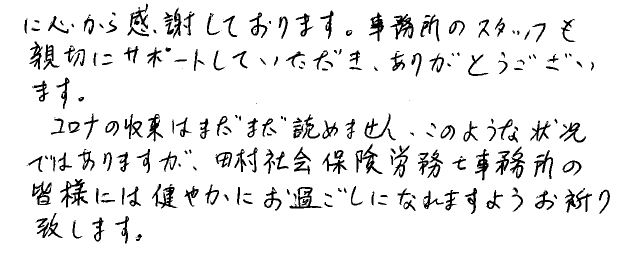 に心から感謝しております。事務所のスタッフも
親切にサポートしていただき、ありがとうござい
ます。
コロナの収束はまだまだ読めません、このような状況
ではありますが、田村社会保険労務士事務所の
皆様には健やかにお過ごしになれますようお祈り
致します。